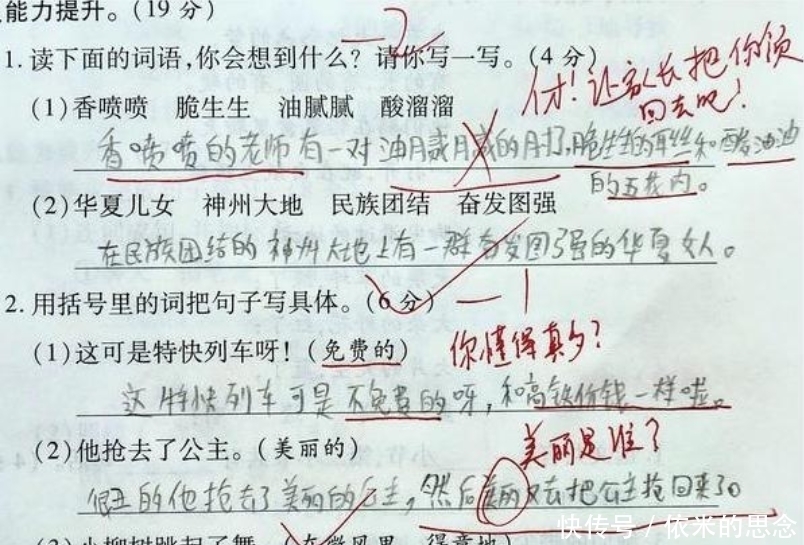 能力提升。(19 分)
1. 读下面的词语,你会想到什么? 请你写一写。(4 分)
-2
付! 让家长把你领回去吧!
(1)香喷喷 脆生生 油腻腻 酸溜溜
香喷喷的老师有一对油腻腻的肘子,脆生生的耳丝和酸油油
的五花肉。
(2)华夏儿女 神州大地 民族团结 奋发图强
在民族团结的神州大地上有一群奋发图强的华夏女人。
2. 用括号里的词把句子写具体。(6 分) -1
(1)这可是特快列车呀! (免费的) 你懂得真多?
这特快列车可是不免费的呀,和高铁价钱一样啦。
(2)他抢去了公主。(美丽的) 美丽是谁?
的他抢去了美丽的公主,然后美丽又去把公主抢回来了。
(3)小柳树跳起了舞。(在微风里 得意地)
快传号 / 依米的思念